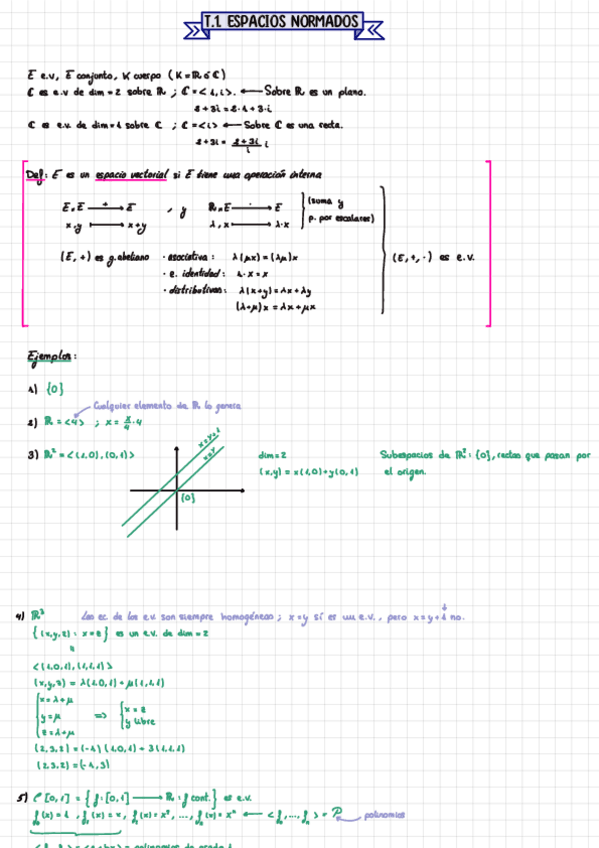 T.1. ESPACIOS NORMADOS
E e.v, E conjunto, K cuerpo (K = ℝ ó ℂ)
ℂ es e.v de dim = 2 sobre ℝ ; ℂ = <1, i>. ⟵ Sobre ℝ es un plano.
2 + 3i = 2·1 + 3·i
ℂ es e.v. de dim = 1 sobre ℂ ; ℂ = <i> ⟵ Sobre ℂ es una recta.
2 + 3i = (2 + 3i)/i i
Def: E es un espacio vectorial si E tiene una operación interna
E×E ⟶ E , y ℝ×E ⟶ E (suma y
x,y ⟼ x+y λ,x ⟼ λ·x p. por escalares)
(E, +) es g. abeliano · asociativa: λ(μx) = (λμ)x (E, +, ·) es e.v.
· e. identidad: 1·x = x
· distributivas: λ(x+y) = λx + λy
(λ+μ)x = λx + μx
Ejemplos:
1) {0}
Cualquier elemento de ℝ lo genera
2) ℝ = <4> ; x = x/4 · 4
3) ℝ² = <(1,0), (0,1)> x=y+1 dim = 2 Subespacios de ℝ²: {0}, rectas que pasan por
x=y (x,y) = x(1,0) + y(0,1) el origen.
{0}
4) ℝ³ Las ec. de los e.v. son siempre homogéneas ; x=y sí es un e.v., pero x=y+1 no.
{(x,y,z) : x=z} es un e.v. de dim = 2
<(1,0,1), (1,1,1)>
(x,y,z) = λ(1,0,1) + μ(1,1,1)
x = λ+μ
y = μ ⟹ x = z
z = λ+μ y libre
(2,3,2) = (-1)(1,0,1) + 3(1,1,1)
(2,3,2) = (-1,3)
5) C[0,1] = {f: [0,1] ⟶ ℝ : f cont.} es e.v.
f₀(x) = 1, f₁(x) = x, f₂(x) = x², ..., fₙ(x) = xⁿ ⟵ <f₀, ..., fₙ> = P polinomios